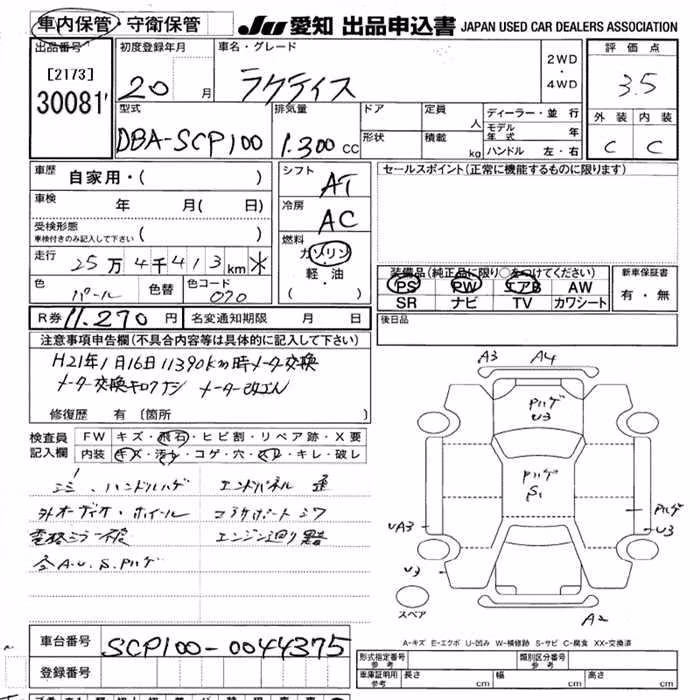 車内保管・守衛保管 JU 愛知 出品申込書 JAPAN USED CAR DEALERS ASSOCIATION
出品番号 初度登録年月 車名・グレード 2WD ・ 4WD 評価点
[2173] 30081 20 月 ラクティス 3.5
型式 排気量 ドア 定員 人 ディーラー・並行 外装 内装
DBA-SCP100 1.300 cc 形状 積載 kg モデル年式 年 C C
ハンドル 左・右
車歴 自家用・( ) シフト AT セールスポイント(正常に機能するものに限ります)
車検 年 月( 日) 冷房 AC
受検形態 車検付きのみ記入して下さい ( ) 燃料 ガソリン・軽・油・( )
走行 25万4千413km ※
装備品(純正品に限り○をつけてください) 新車保証書
色 パール 色替 色コード 070 PS PW エアB AW 有・無
SR ナビ TV カワシート
R券 11.270 円 名変通知期限 月 日 後日品
注意事項申告欄(不具合内容等は具体的に記入して下さい)
H21年1月16日 11390km時メーター交換
メーター交換キロクナシ メーター改ざん
修復歴 有 〔箇所
検査員記入欄 FW キズ・飛石・ヒビ割・リペア跡・X要
内装 キズ・汚れ・コゲ・穴・スレ・キレ・破レ
ハンドルハゲ
外オーディオ・ホイール
エンジン廻り
全A.U.S.Pハゲ
A3 A4
Pハゲ U3
Pハゲ S1
UA3 Pハゲ U3
U3
スペア A2
A-キズ E-エクボ U-凹み W-補修跡 S-サビ C-腐食 XX-交換済
車台番号 SCP100-0044375
登録番号
形式指定番号 参考 類別区分番号 参考
車庫証明用 参考 長さ cm 幅 cm 高さ cm